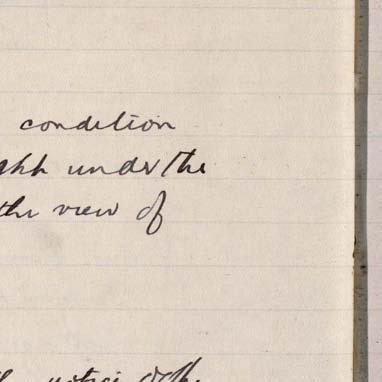 condition
under the
the view of
notice of the